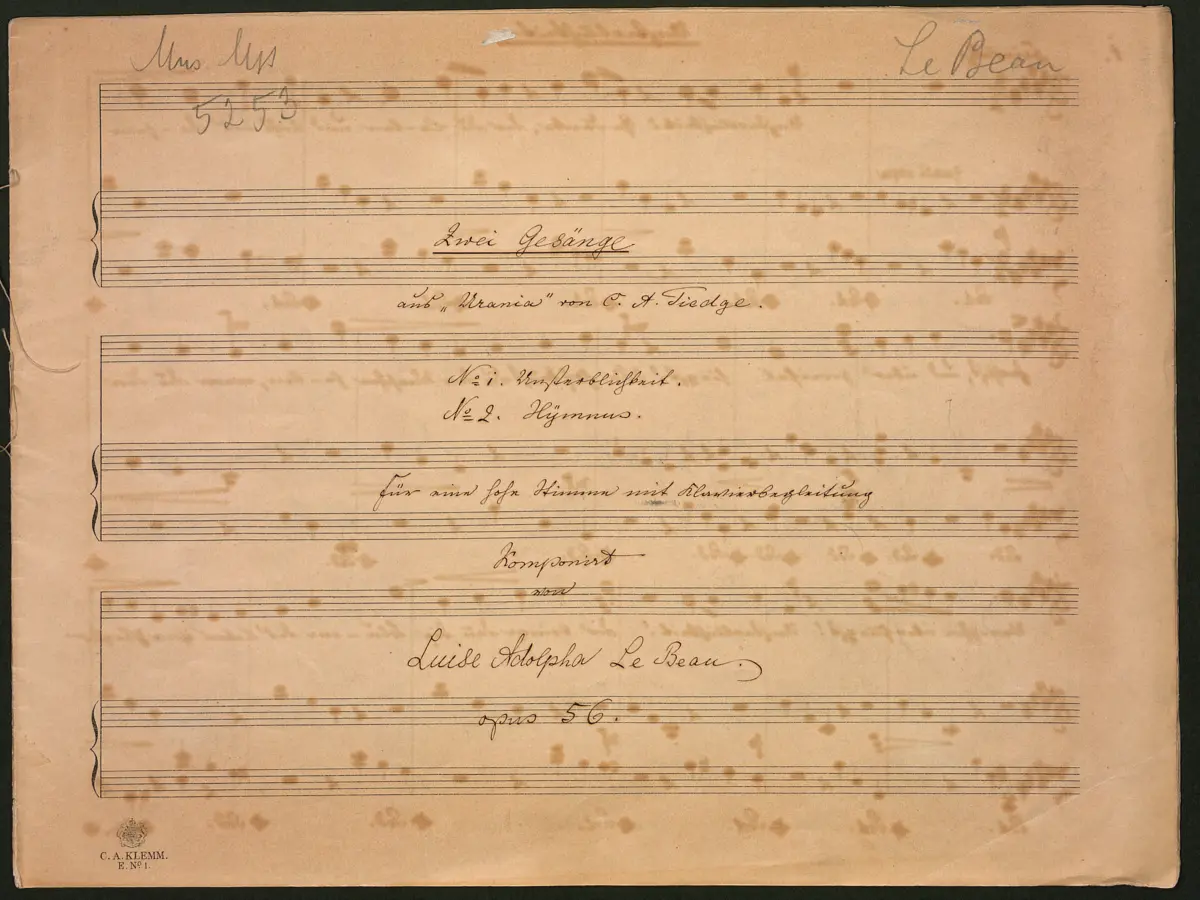 Mus Mss
5253
Le Beau
Zwei Gesänge
aus „Urania" von C. A. Tiedge.
No 1. Unsterblichkeit.
No 2. Hÿmnus.
für eine hohe Stimme mit Klavierbegleitung
Komponirt
von
Luise Adolpha Le Beau.
opus 56.
C. A. KLEMM.
E. No 1.